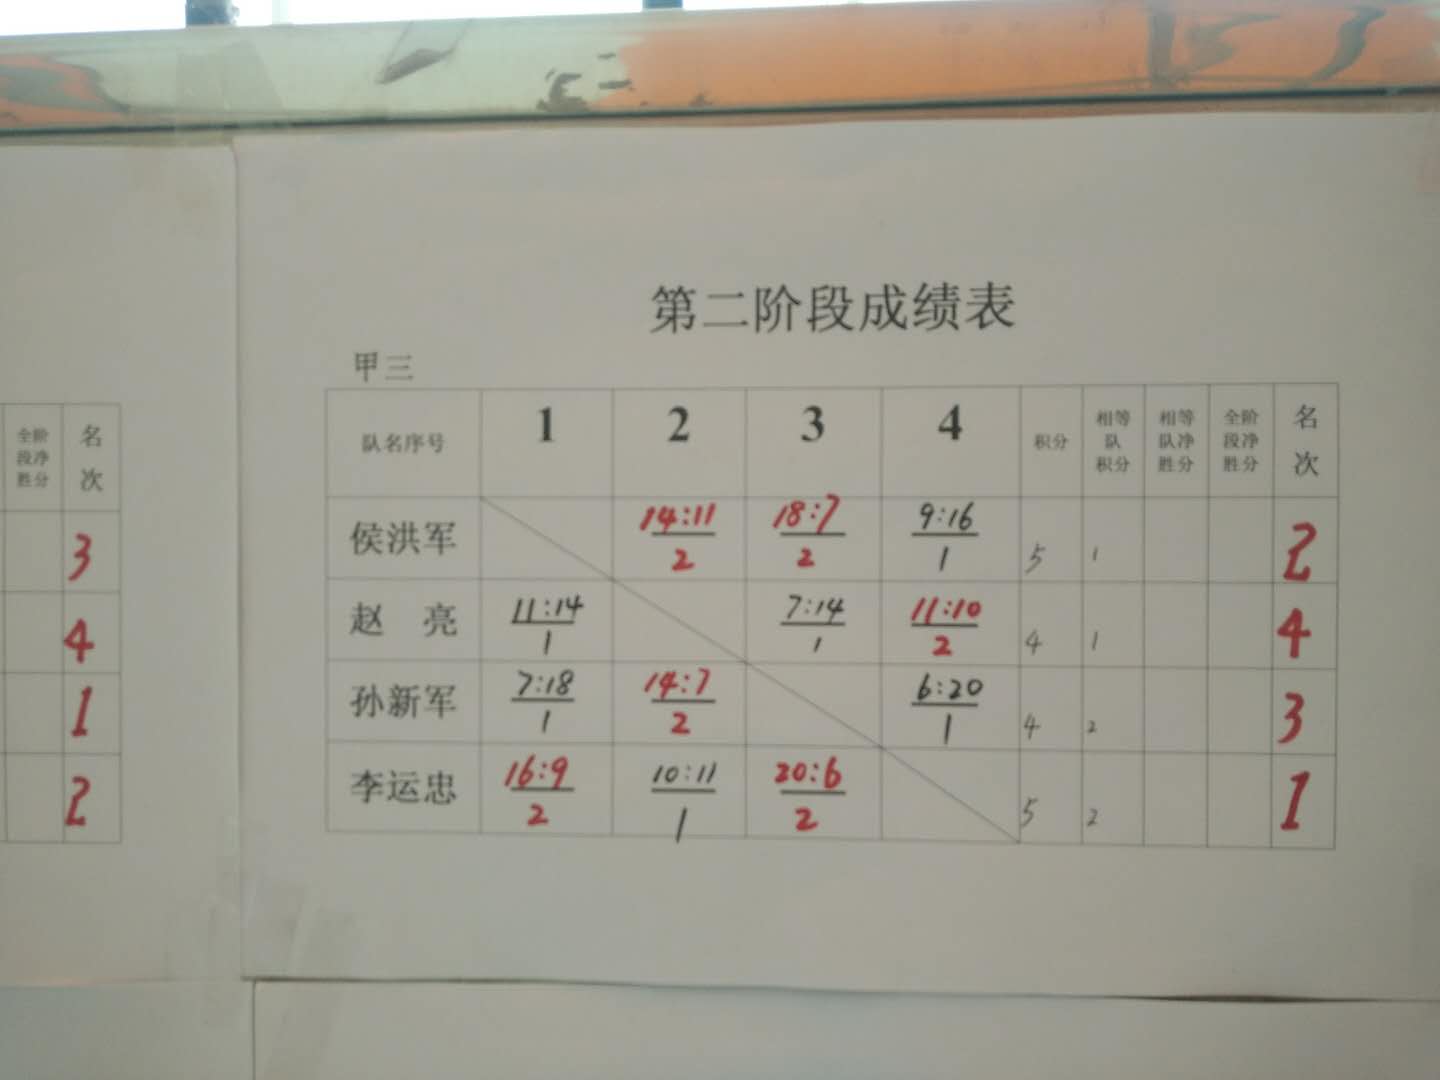 第二阶段成绩表
甲三
队名序号 1 2 3 4 积分 相等队积分 相等队净胜分 全阶段净胜分 名次
侯洪军 14:11 2 18:7 2 9:16 1 5 1 2
赵 亮 11:14 1 7:14 1 11:10 2 4 1 4
孙新军 7:18 1 14:7 2 6:20 1 4 2 3
李运忠 16:9 2 10:11 1 20:6 2 5 2 1
全阶段净胜分 名次
3
4
1
2